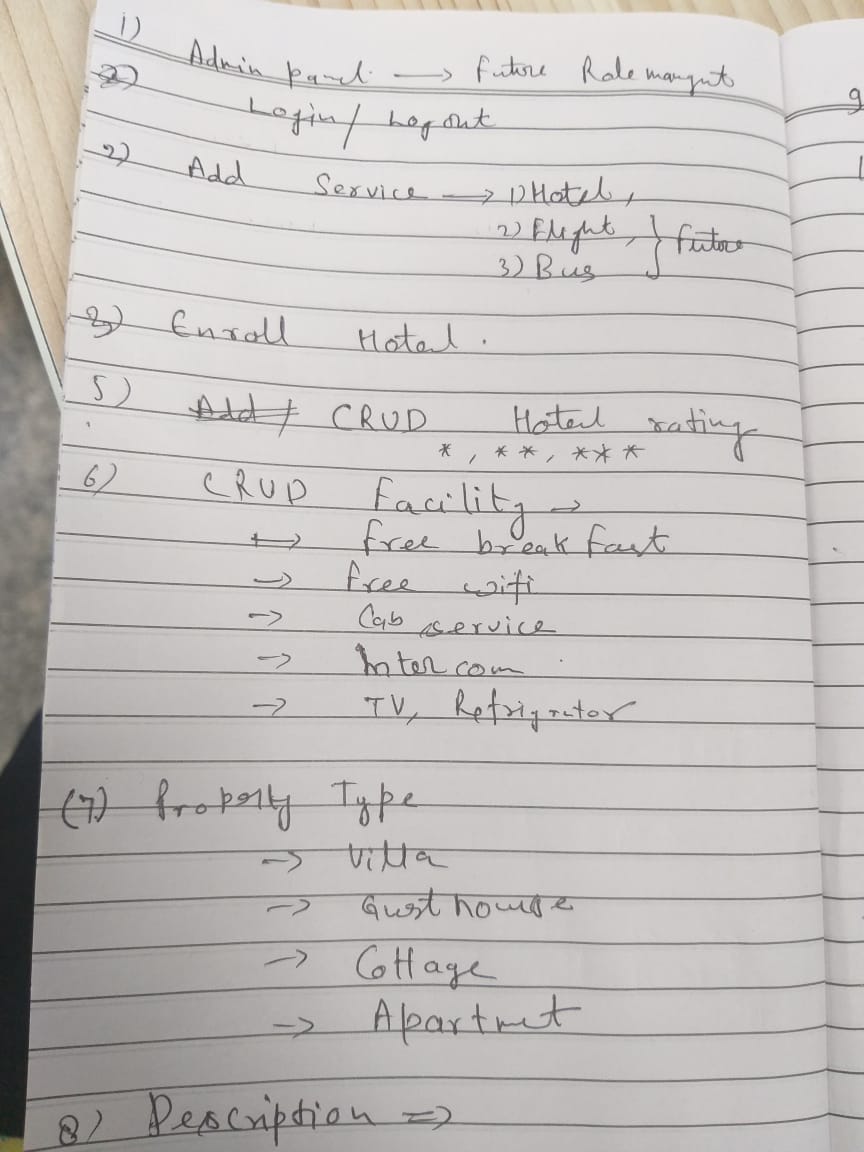 1) Admin panel → Future Role mangmt
2)
Login / Logout
2) Add Service → 1) Hotel,
2) Flight, } future
3) Bus
3) Enroll Hotel.
5) Add / CRUD Hotel rating
*, **, ***
6) CRUD Facility →
→ free break fast
→ free wifi
→ Cab service
→ Intercom
→ TV, Refrigrator
(7) Property Type
→ Villa
→ Gust house
→ Cottage
→ Apartmet
8) Description ⇒
9
1